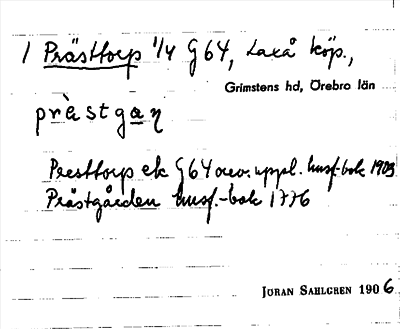 1 Prästtorp 1/4 G 64, Laxå köp.,
Grimstens hd, Örebro län
prästgan
Presttorp ek G 64 ouppl. husf-bok 1903
Prästgården husf.-bok 1776
JÖRAN SAHLGREN 1906